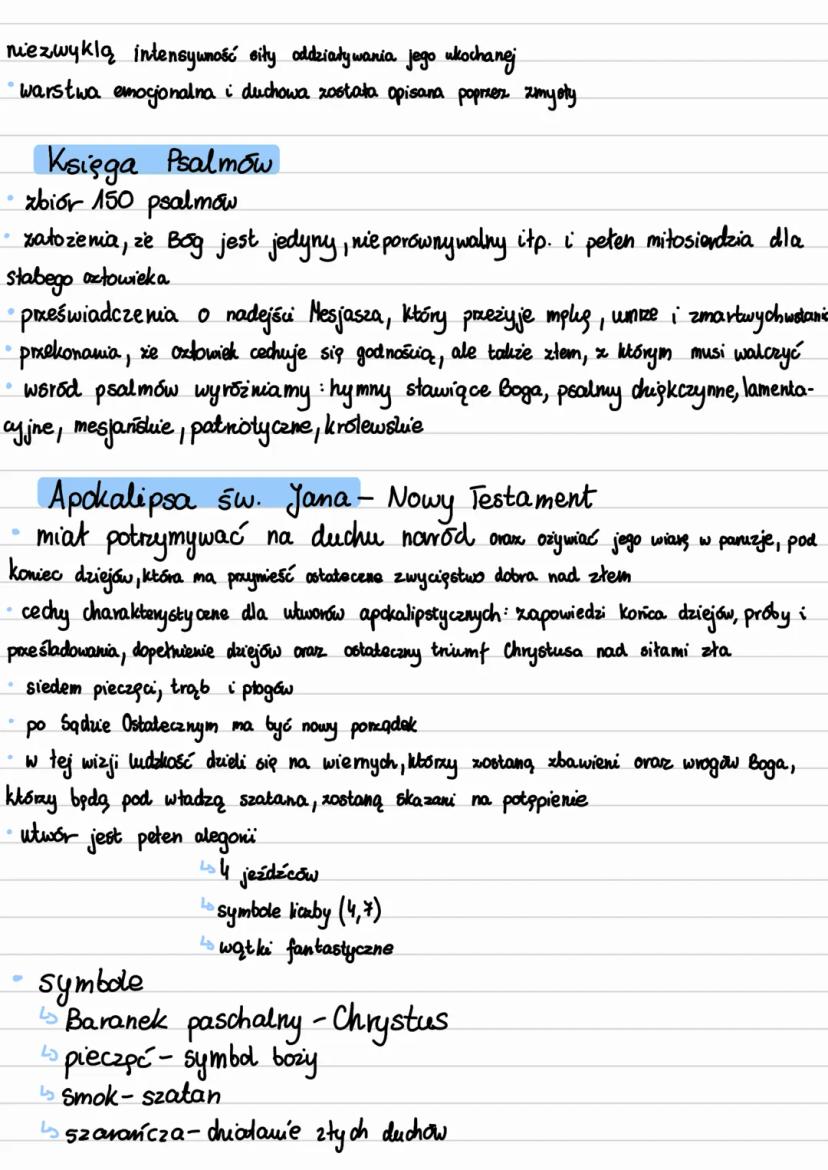 niezwykłą intensywność siły oddziaływania jego ukochanej
• warstwa emocjonalna i duchowa została opisana poprzez zmysły
Księga Psalmów
• zbiór 150 psalmów
• założenia, że Bóg jest jedyny, nieporównywalny itp. i pełen miłosierdzia dla
słabego człowieka
• przeświadczenia o nadejści Mesjasza, który przeżyje mękę, umrze i zmartwychwstanie
• przekonania, że człowiek cechuje się godnością, ale także złem, z którym musi walczyć
• wśród psalmów wyróżniamy: hymny sławiące Boga, psalmy dziękczynne, lamenta-
cyjne, mesjańskie, patriotyczne, królewskie
Apokalipsa św. Jana - Nowy Testament
• miał potrzymywać na duchu naród oraz ożywiać jego wiarę w paruzję, pod
koniec dziejów, która ma przynieść ostateczne zwycięstwo dobra nad złem
• cechy charakterystyczne dla utworów apokalipstycznych: zapowiedzi końca dziejów, próby i
prześladowania, dopełnienie dziejów oraz ostateczny triumf Chrystusa nad siłami zła
• siedem pieczęci, trąb i plogów
• po Sądzie Ostatecznym ma być nowy porządek
• w tej wizji ludzkość dzieli się na wiernych, którzy zostaną zbawieni oraz wrogów Boga,
którzy będą pod władzą szatana, zostaną skazani na potępienie
• utwór jest pełen alegorii
↳ 4 jeźdźców
↳ symbole liczby (4,7)
↳ wątki fantastyczne
• symbole
↳ Baranek paschalny - Chrystus
↳ pieczęć - symbol boży
↳ smok - szatan
↳ szarańcza - działanie złych duchów